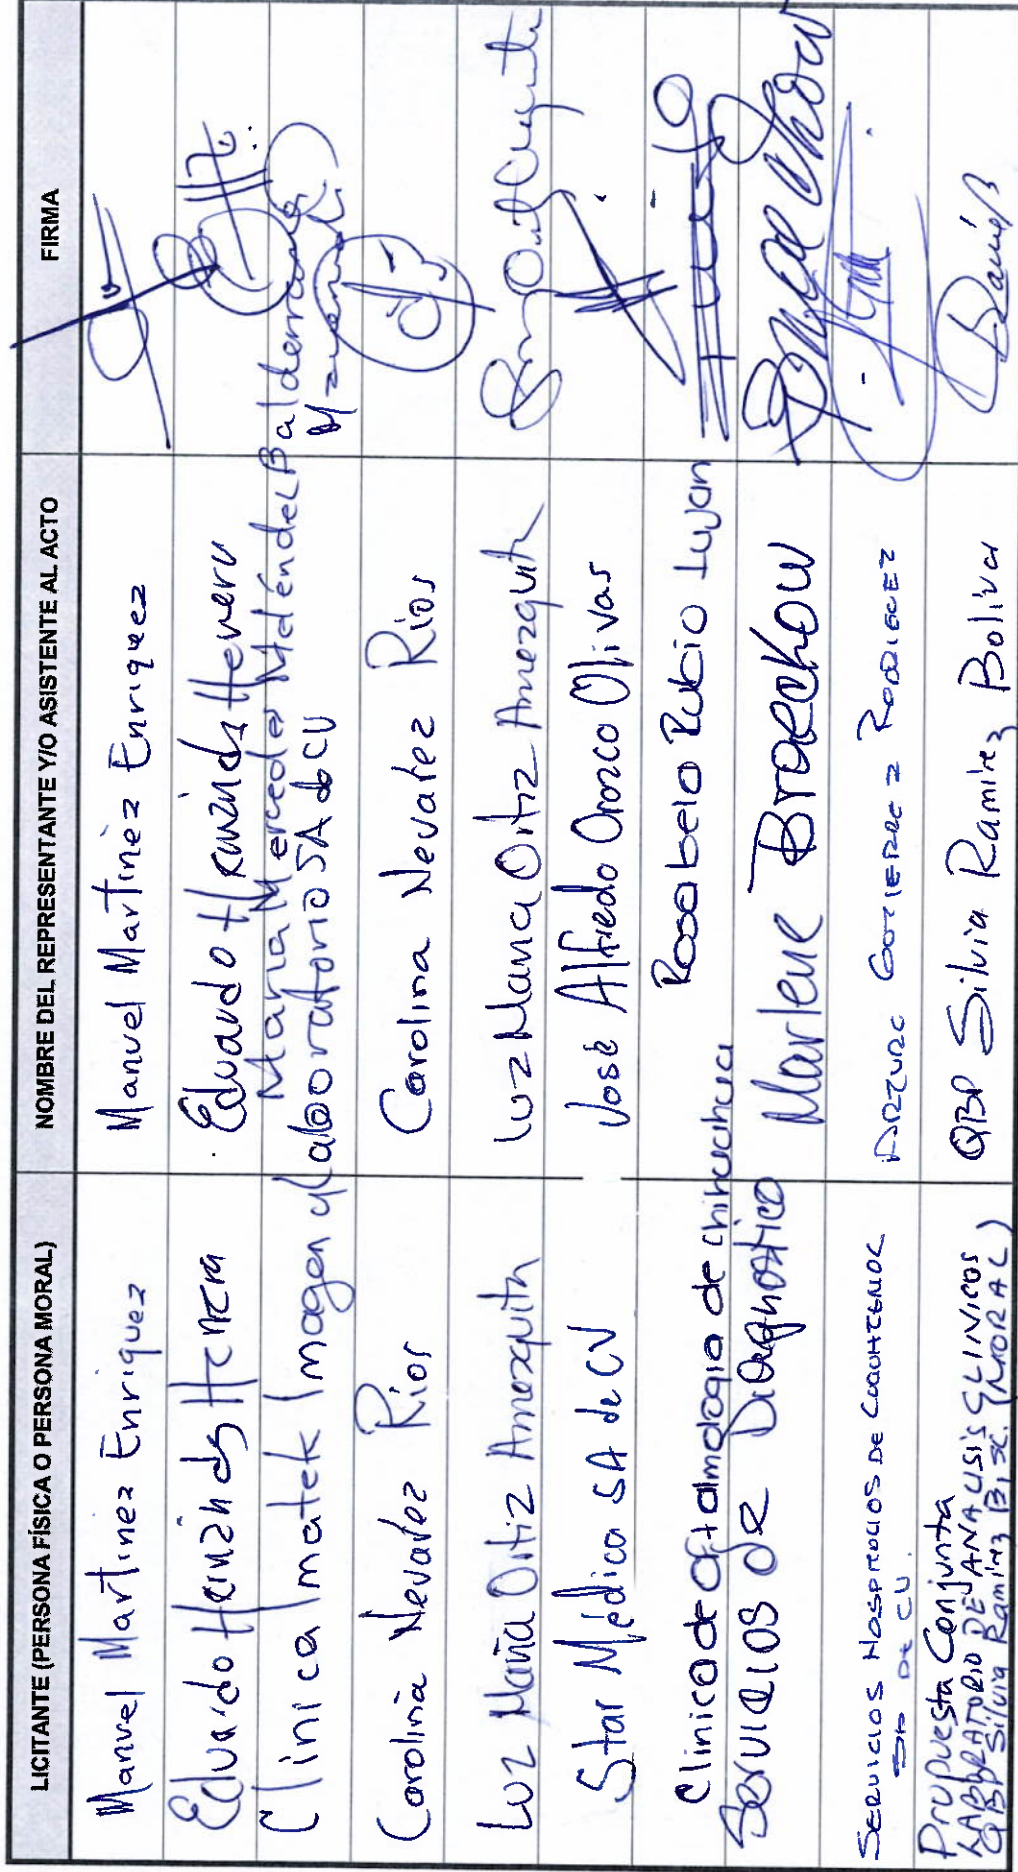 LICITANTE (PERSONA FÍSICA O PERSONA MORAL) NOMBRE DEL REPRESENTANTE Y/O ASISTENTE AL ACTO FIRMA
Manuel Martinez Enriquez Manuel Martinez Enriquez
Eduardo Hernández Herrera Eduardo Hernández Herrera
Clinica Imatek Imagen y Laboratorio SA de CV Maria Mercedes Meléndez Balderrama
Carolina Nevarez Rios Carolina Nevarez Rios
Luz Maria Ortiz Amezquita Luz Maria Ortiz Amezquita
Star Médica SA de CV José Alfredo Orozco Olivas
Clinica de Oftalmologia de chihuahua Rosa belo Rubio Lujan
Servicios de Diagnostico Marlene Braechow
SERVICIOS HOSPITALARIOS DE CUAUHTEMOC
SA DE CV. GUTIERREZ RODRIGUEZ
Propuesta Conjunta
LABORATORIO DE ANALISIS CLINICOS
QBP Silvia Ramirez B, (MORAL) QBP Silvia Ramirez Bolivar